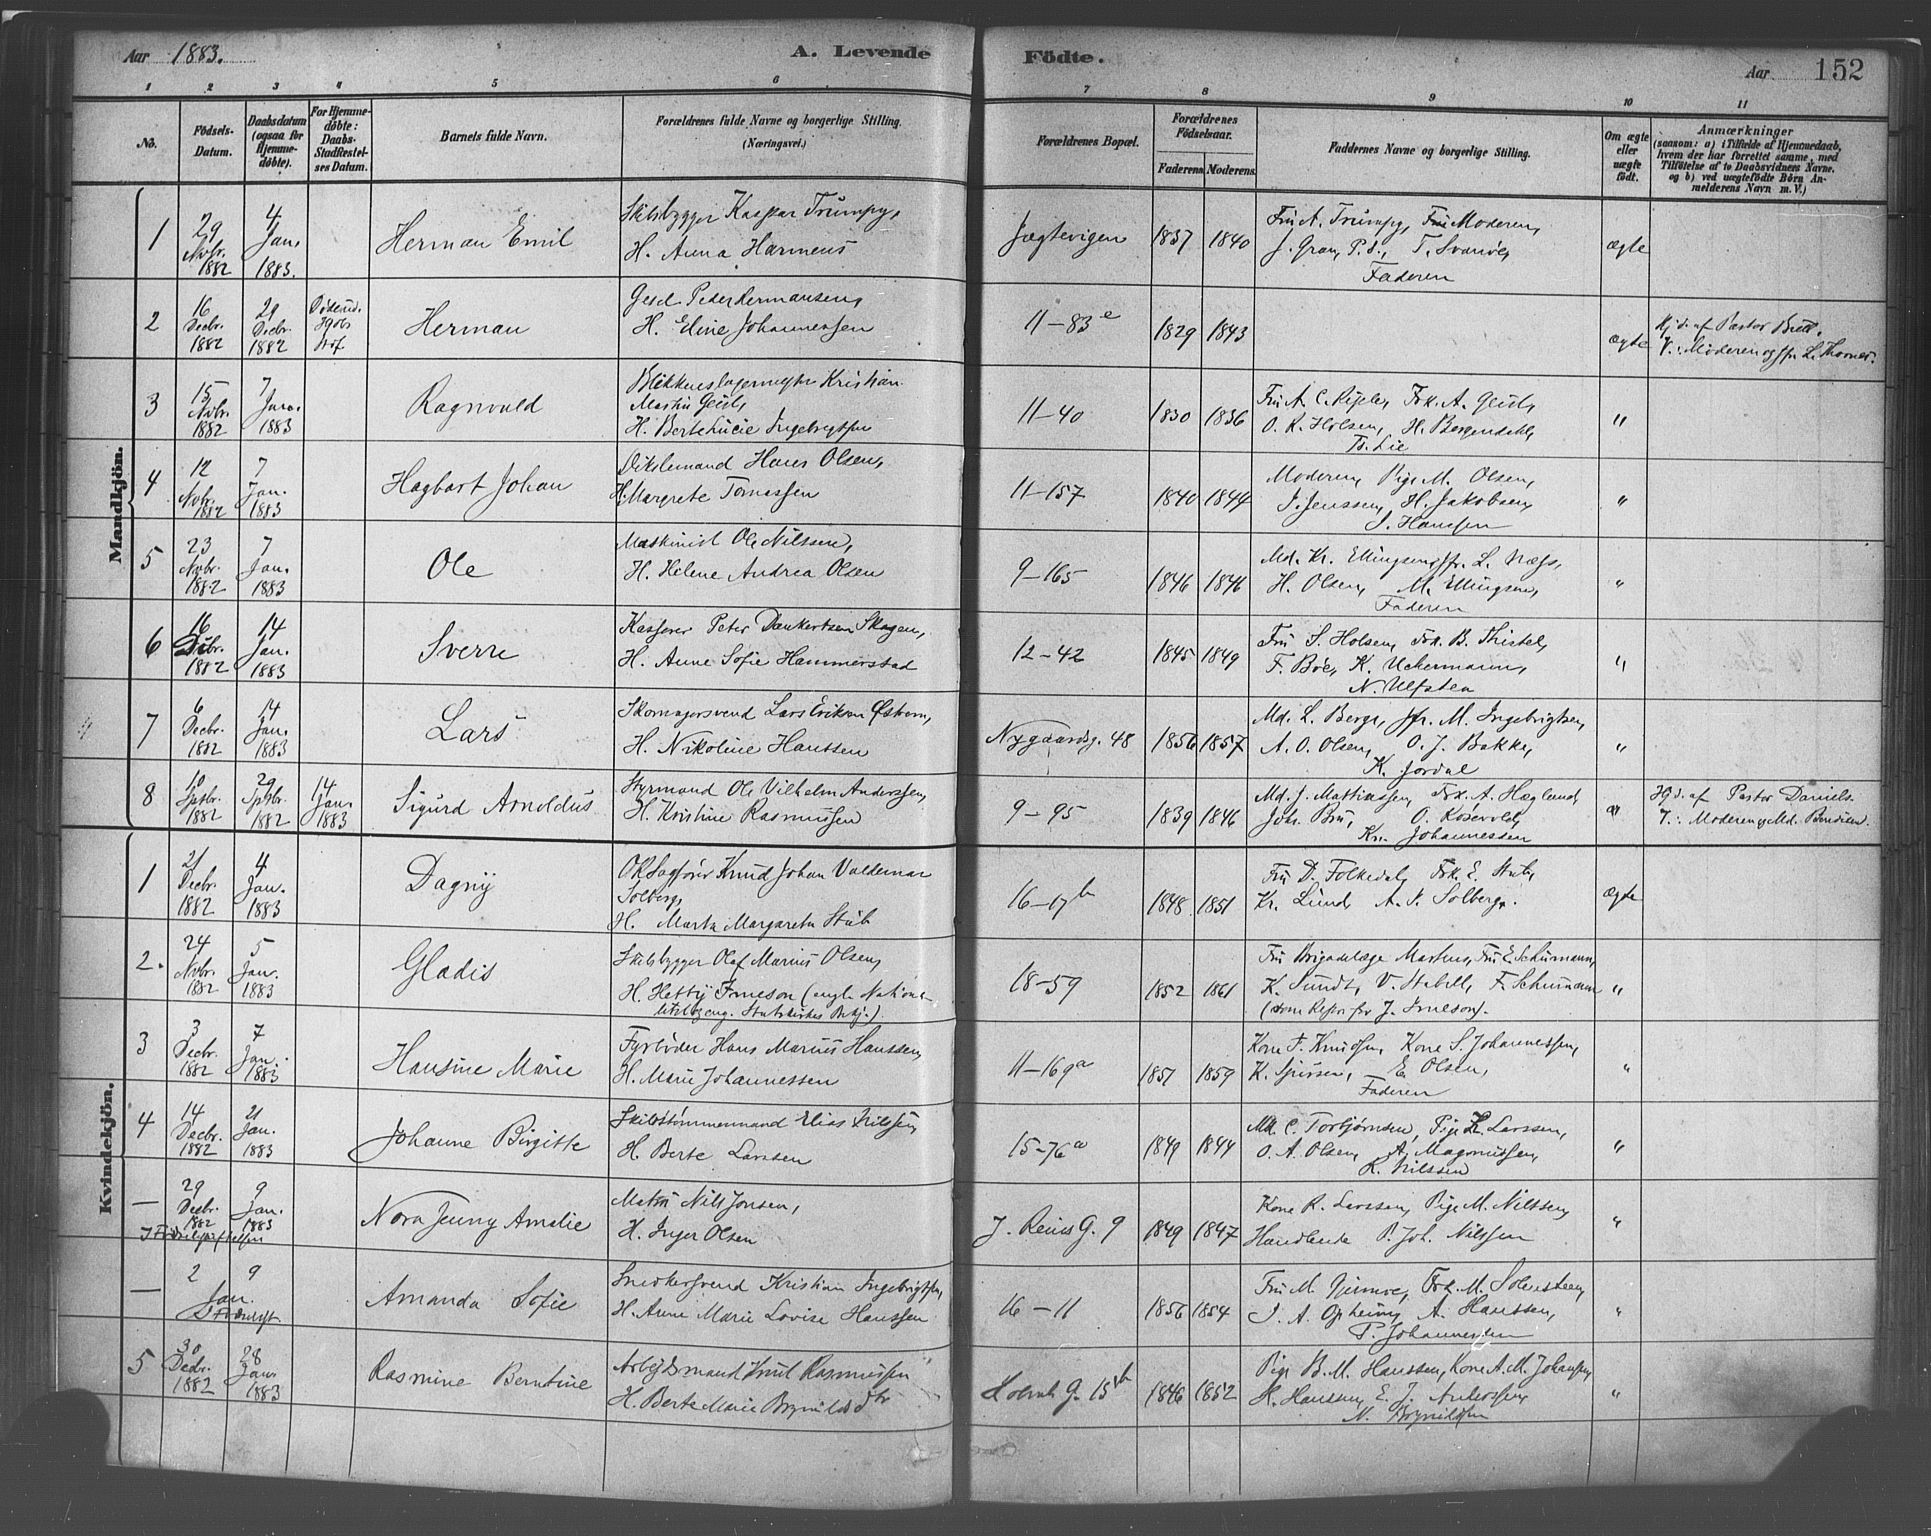 Aar 1883. A. Levende Födte. Aar 152
1 2 3 4 5 6 7 8 9 10 11
No. Födsels-Datum. Daabsdatum (ogsaa for Hjemmedöbte). For Hjemmedöbte: Daabs-Stadfæstelses Datum. Barnets fulde Navn. Forældrenes fulde Navne og borgerlige Stilling. (Næringsvei.) Forældrenes Bopæl. Forældrenes Födselsaar. Faderens Moderens Faddernes Navne og borgerlige Stilling. Om ægte eller uægte födt. Anmærkninger (saasom: a) i Tilfælde af Hjemmedaab, hvem der har forrettet samme, med Tilföielse af to Daabsvidners Navne, og b) ved uægtefödte Börn Anmelderens Navn m. V.)
Mandkjön.
1 29 Novbr. 1882 4 Jan. 1883. Herman Emil Skibsbygger Kaspar Trumpy, Jægtevigen 1837 1840 Fru A. Trumpy, Fru Moderen, ægte
H. Anna Harmens J. Gran, P. S., T. Svanøe,
Faderen
2 16 Decbr. 1882 21 Decbr. 1882 Herman Gesel Peder Hermansen, 11-83e 1829 1843 ægte Hj.d. af Pastor
H. Eline Johannessen V.: Moderen og Jfr L. Thorner.
3 15 Novbr. 1882 7 Jan. 1883 Ragnvald Blikkenslagermester Kristian 11-40 1830 1836 Fru A. C. Frk. A. Geist, "
Martin Geist, O. K. Holsen, H. Bergendahl,
H. Berte Lucie Ingebrigtsen Ts. Lie
4 12 Novbr. 1882 7 Jan. 1883 Hagbart Johan Hans Olsen, 11-157 1840 1844 Moderen, Pige M. Olsen, "
H. Margrete Tomassen J. Jenssen, H. Jakobsen,
J. Hanssen
5 23 Novbr. 1882 7 Jan. 1883 Ole Maskinist Ole Nilssen, 9-165 1846 1846 Md. Kr. Ellingsen, Jfr. L. Næss, "
H. Helene Andrea Olsen H. Olsen, M. Ellingsen,
Faderen
6 16 1882 14 Jan. 1883 Sverre Kasserer Peter Dankertsen Skagen, 12-42 1845 1849 Fru S. Holsen, Frk. B. Thistel, "
H. Anne Sofie Hammerstad F. Bøe, K. Uchermann,
N. Ulfsten
7 6 Decbr. 1882 14 Jan. 1883 Lars Skomagersvend Lars Eriksen Østrem, Nygaardsg. 48 1856 1857 Md. L. Berge, Jfr. M. Ingebrigtsen, "
H. Nikoline Hanssen A. O. Olsen, O. J. Bakke,
K. Jordal
8 10 Sptbr. 1882 29 Sptbr. 1882 14 Jan. 1883 Sigurd Arnoldus Styrmand Ole Vilhelm Anderssen, 9-95 1839 1846 Md. J. Mathiassen, Frk. A. Høglund, Hj.d. af Pastor Daniels.
H. Kristine Rasmussen Joh. Bru, O. Rosevold, V.: Moderen og Md. Bendixen
Kr. Johannessen
Kvindekjön.
1 21 Decbr. 1882 4 Jan. 1883 Dagny ORSagfører Knud Johan Valdemar 16-17b 1848 1851 Fru D. Folkedal, Frk. E. Stub, ægte
Solberg, Kr. Lund, A. S. Solberg.
H. Marta Margareta Stub
2. 24 Novbr. 1882 5 Jan. 1883 Gladis Skibsbygger Olaf Marius Olsen, 18-59 1852 1861 Fru Brigadelæge Martens, Fru E. Schumann, "
H. Hetty Imeson (engl. K. Sundt, V. Stabell, F. Schumann
Statskirkes Bekj.). (som Repr. for J. Imeson).
3 3 Decbr. 1882 7 Jan. 1883 Hansine Marie Fyrbøder Hans Marius Hanssen, 11-169a 1857 1859 Kone F. Knudsen, Kone S. Johannessen, "
H. Marie Johannessen K. E. Olsen,
Faderen
4 14 Decbr. 1882 21 Jan. 1883 Johanne Birgitte Skibstømmermand Elias Nilssen, 15-76a 1849 1844 Md. C. Torbjørnsen, Pige H. Larssen, "
H. Berte Larssen O. A. Olsen, A. Magnussen,
K. Nilssen
— 29 Decbr. 1882 9 Jan. 1883 Nora Jenny Amalie Matros Nils Jonsen, J. Reins G. 9 1849 1847 Kone R. Larssen, Pige M. Nilssen, "
I Fødselsstiftelsen H. Inger Olsen Handlende P. Joh. Nilssen
— 2 9 Jan. Amanda Sofie Snedkersvend Kristian Ingebrigtsen, 16-11 1856 1854 Fru M. Frk. M. "
H. Anne Marie Lovise Hanssen J. A. Opheim, A. Hanssen,
P. Johannessen
5 30 Decbr. 1882 28 Jan. 1883 Rasmine Berntine Arbeidsmand Knut Rasmussen G. 15b 1846 1852 Pige B. M. Hanssen, Kone A. M. Johansen, "
H. Berte Marie Brynildsdtr H. Hanssen, E. J. Anderssen,
N. Brynildsen